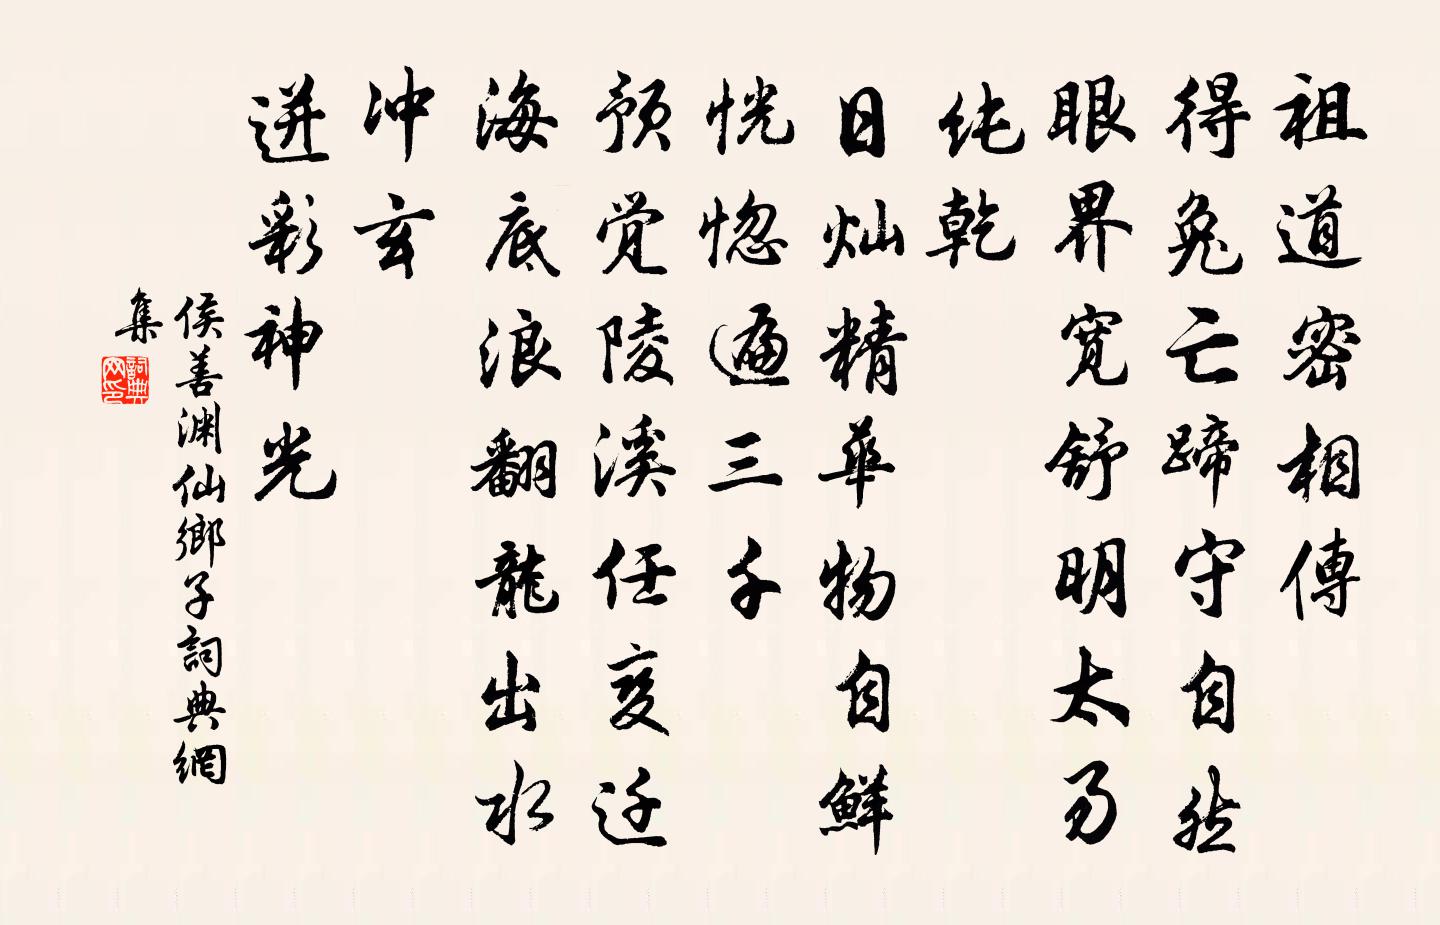 祖道密相傳
得兔亡蹄守自然
眼界寬舒明太易
纯乾
日灿精華物自鮮
恍惚遍三千
预觉陵溪任变迁
海底浪翻龍出水
冲玄
迸彩神光
侯善渊仙鄉子詞典網
集
詞典
网印